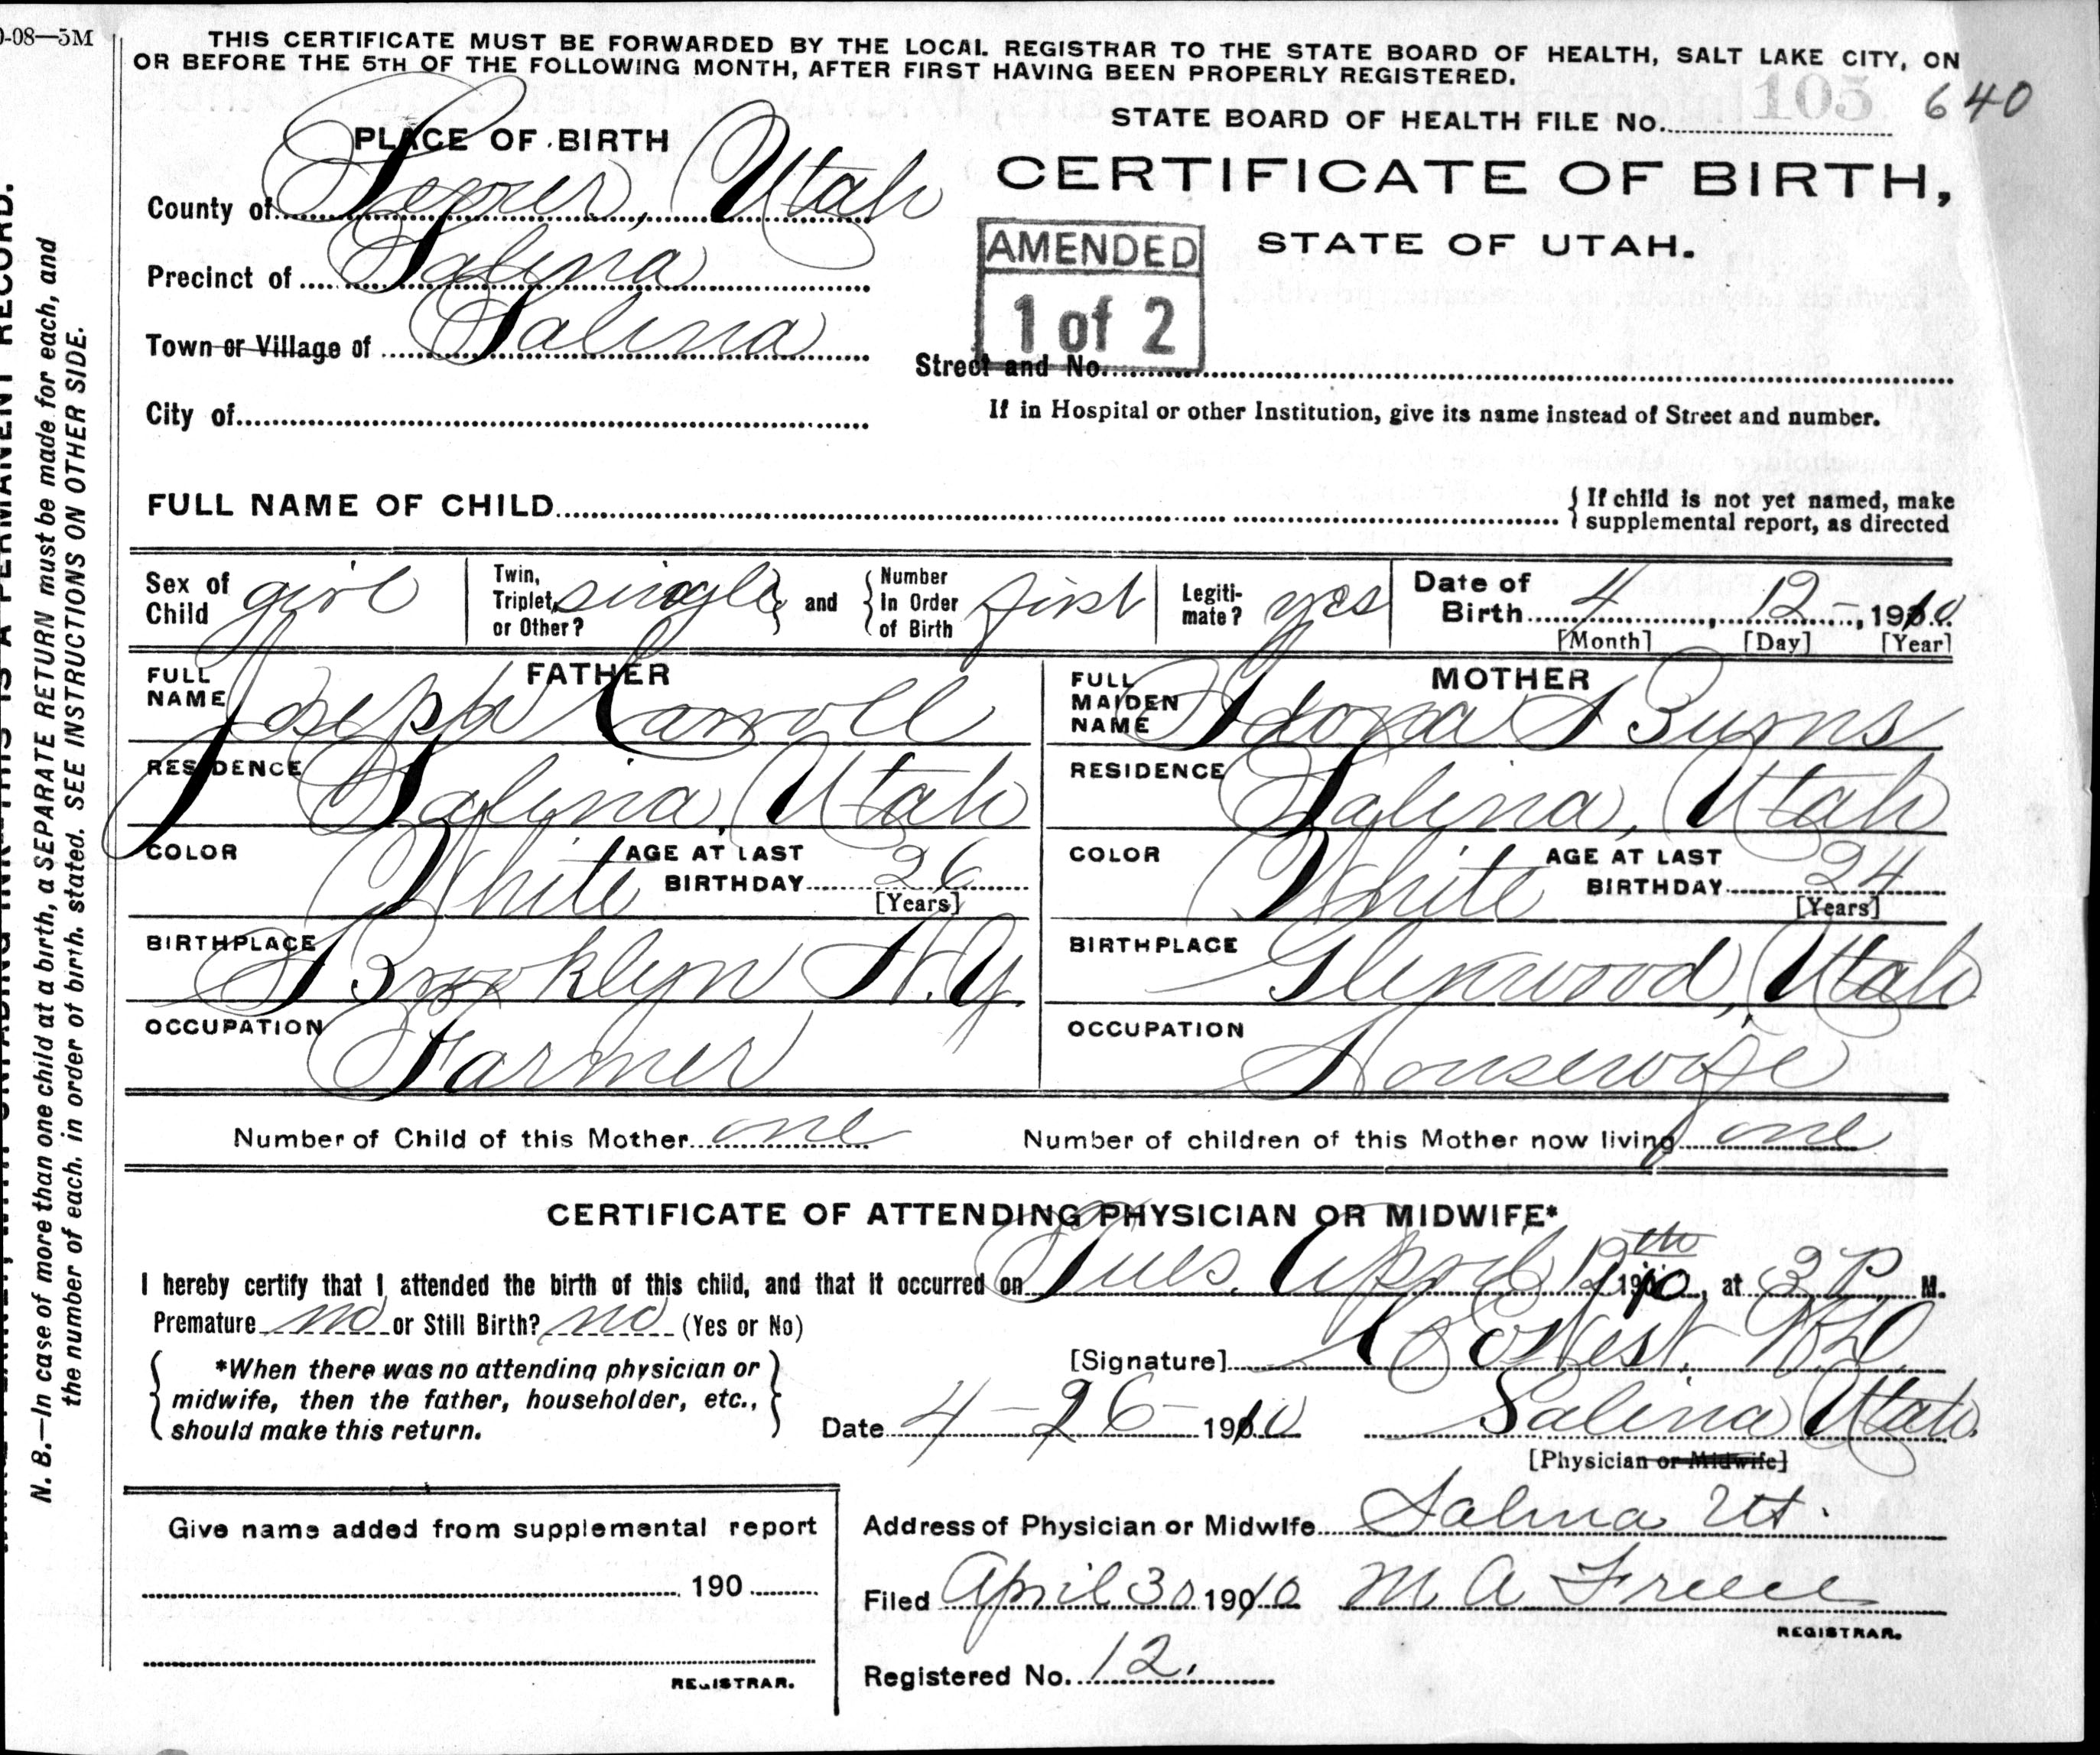 0-08—5M
THIS CERTIFICATE MUST BE FORWARDED BY THE LOCAL REGISTRAR TO THE STATE BOARD OF HEALTH, SALT LAKE CITY, ON
OR BEFORE THE 5TH OF THE FOLLOWING MONTH, AFTER FIRST HAVING BEEN PROPERLY REGISTERED.
STATE BOARD OF HEALTH FILE No. 105 640
PLACE OF BIRTH
CERTIFICATE OF BIRTH,
STATE OF UTAH.
County of Sevier, Utah
AMENDED
1 of 2
Precinct of Salina
Town or Village of Salina
Street and No.
City of
If in Hospital or other Institution, give its name instead of Street and number.
FULL NAME OF CHILD
{ If child is not yet named, make
supplemental report, as directed
Sex of Child girl
Twin, Triplet, or Other? single } and { Number In Order of Birth first
Legitimate? yes
Date of Birth 4, 12-, 1910
[Month] [Day] [Year]
FATHER
FULL NAME Joseph Carroll
RESIDENCE Salina, Utah
COLOR White AGE AT LAST BIRTHDAY 26
[Years]
BIRTHPLACE Brooklyn N.Y.
OCCUPATION Farmer
MOTHER
FULL MAIDEN NAME S Burns
RESIDENCE Salina, Utah
COLOR White AGE AT LAST BIRTHDAY 24
[Years]
BIRTHPLACE Glenwood, Utah
OCCUPATION Housewife
Number of Child of this Mother one
Number of children of this Mother now living one
CERTIFICATE OF ATTENDING PHYSICIAN OR MIDWIFE*
I hereby certify that I attended the birth of this child, and that it occurred on Tues. April 12th 1910, at 3 P. M.
Premature no or Still Birth? no (Yes or No)
[Signature] West
{ *When there was no attending physician or
midwife, then the father, householder, etc.,
should make this return. }
Date 4-26-1910
Salina Utah.
[Physician or Midwife]
Give name added from supplemental report
190
REGISTRAR.
Address of Physician or Midwife Salina Ut.
Filed April 30 1910 M A
REGISTRAR.
Registered No. 12.
RECORD.
THIS IS A PERMANENT
N. B.—In case of more than one child at a birth, a SEPARATE RETURN must be made for each, and
the number of each, in order of birth, stated. SEE INSTRUCTIONS ON OTHER SIDE.